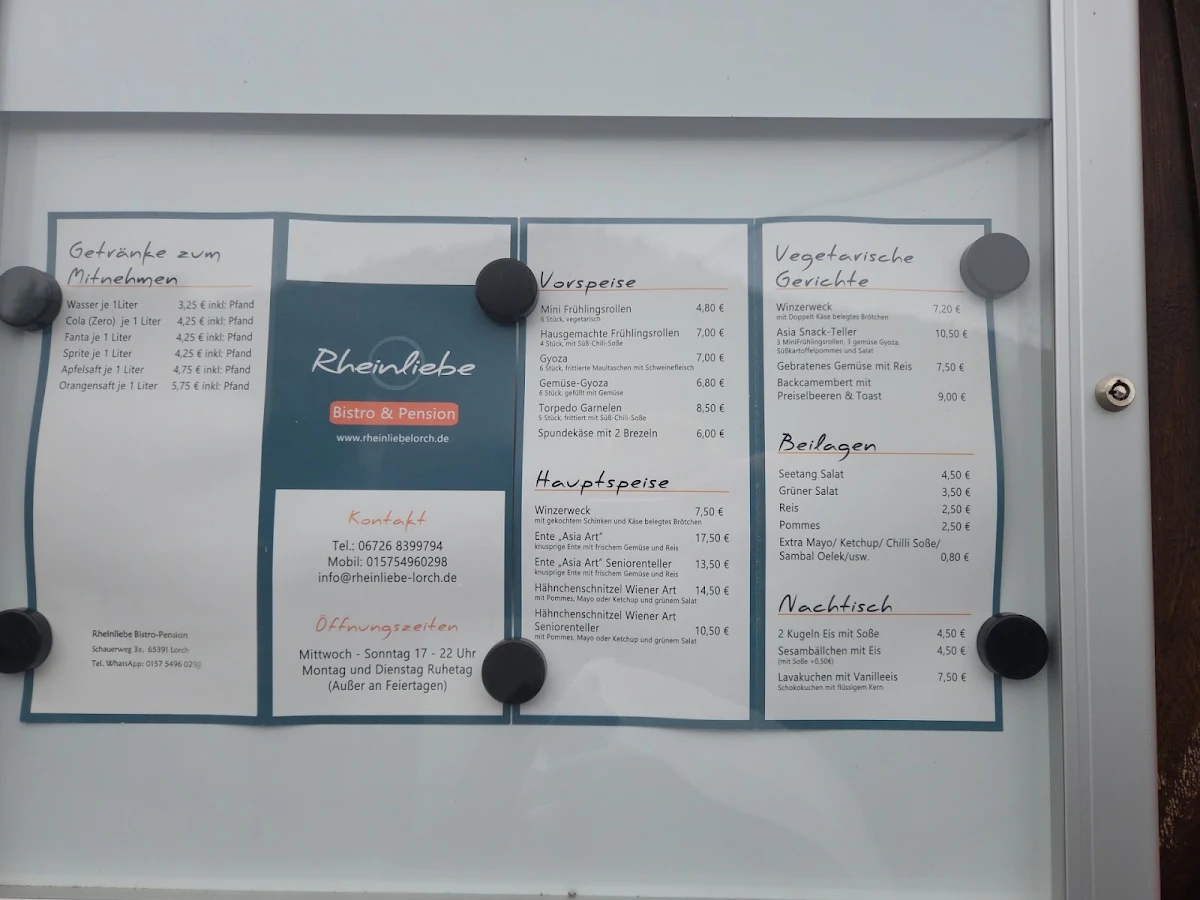 Getränke zum
Mitnehmen
Wasser je 1Liter 3,25 € inkl: Pfand
Cola (Zero) je 1 Liter 4,25 € inkl: Pfand
Fanta je 1 Liter 4,25 € inkl: Pfand
Sprite je 1 Liter 4,25 € inkl: Pfand
Apfelsaft je 1 Liter 4,75 € inkl: Pfand
Orangensaft je 1 Liter 5,75 € inkl: Pfand
Rheinliebe Bistro-Pension
Schauerweg 3a, 65391 Lorch
Tel. WhatsApp: 0157 5496 0298
Rheinliebe
Bistro & Pension
www.rheinliebelorch.de
Kontakt
Tel.: 06726 8399794
Mobil: 015754960298
info@rheinliebe-lorch.de
Öffnungszeiten
Mittwoch - Sonntag 17 - 22 Uhr
Montag und Dienstag Ruhetag
(Außer an Feiertagen)
Vorspeise
Mini Frühlingsrollen 4,80 €
6 Stück, vegetarisch
Hausgemachte Frühlingsrollen 7,00 €
4 Stück, mit Süß-Chili-Soße
Gyoza 7,00 €
6 Stück, frittierte Maultaschen mit Schweinefleisch
Gemüse-Gyoza 6,80 €
6 Stück, gefüllt mit Gemüse
Torpedo Garnelen 8,50 €
5 Stück, frittiert mit Süß-Chili-Soße
Spundekäse mit 2 Brezeln 6,00 €
Hauptspeise
Winzerweck 7,50 €
mit gekochtem Schinken und Käse belegtes Brötchen
Ente „Asia Art" 17,50 €
knusprige Ente mit frischem Gemüse und Reis
Ente „Asia Art" Seniorenteller 13,50 €
knusprige Ente mit frischem Gemüse und Reis
Hähnchenschnitzel Wiener Art 14,50 €
mit Pommes, Mayo oder Ketchup und grünem Salat
Hähnchenschnitzel Wiener Art
Seniorenteller 10,50 €
mit Pommes, Mayo oder Ketchup und grünem Salat
Vegetarische
Gerichte
Winzerweck 7,20 €
mit Doppelt Käse belegtes Brötchen
Asia Snack-Teller 10,50 €
3 MiniFrühlingsrollen, 3 gemüse Gyoza,
Süßkartoffelpommes und Salat
Gebratenes Gemüse mit Reis 7,50 €
Backcamembert mit
Preiselbeeren & Toast 9,00 €
Beilagen
Seetang Salat 4,50 €
Grüner Salat 3,50 €
Reis 2,50 €
Pommes 2,50 €
Extra Mayo/ Ketchup/ Chilli Soße/
Sambal Oelek/usw. 0,80 €
Nachtisch
2 Kugeln Eis mit Soße 4,50 €
Sesambällchen mit Eis 4,50 €
(mit Soße +0,50€)
Lavakuchen mit Vanilleeis 7,50 €
Schokokuchen mit flüssigem Kern